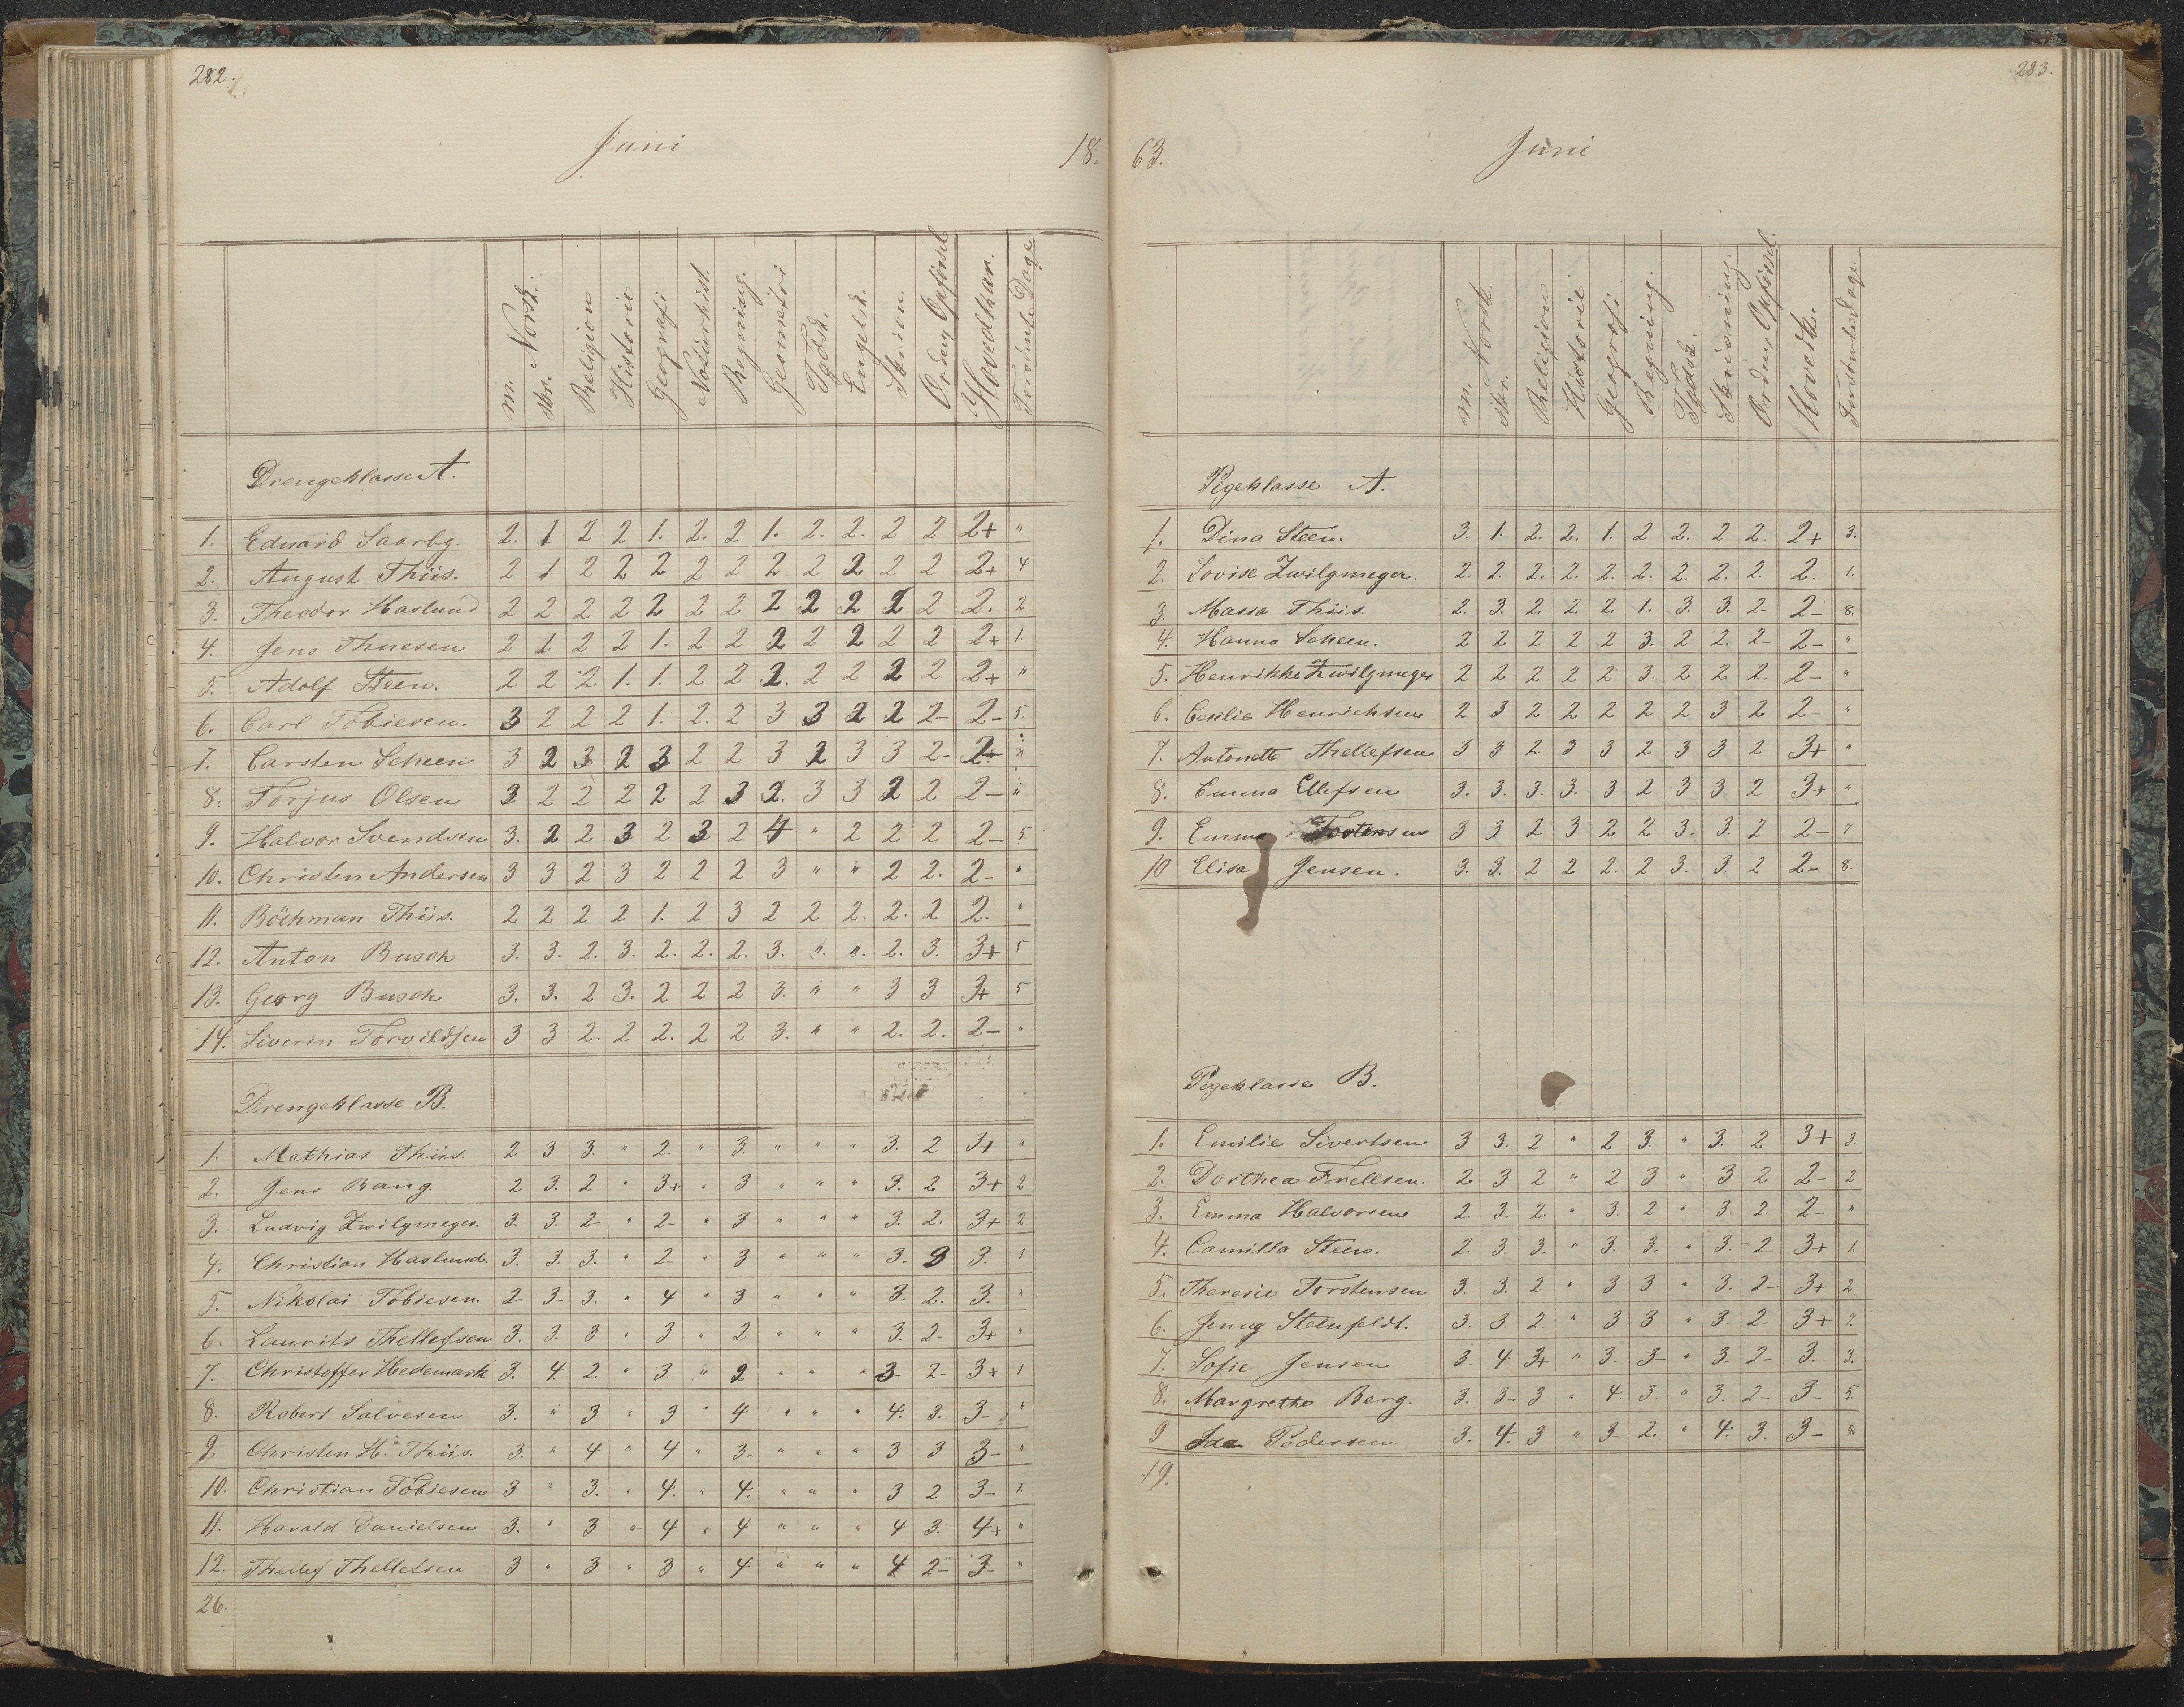 282.
Juni 18.
m. skr. Norsk. Religion Historie Geografi Naturhist. Regning. Geometri Tydsk. Engelsk. Skrivn. Orden, Opførsel Hovedkar. Forsømte Dage
Drengeklasse A.
1. Edvard Saarbg. 2. 1 2 2 1. 2. 2 1. 2. 2. 2 2 2+ "
2. August Thiis. 2 1 2 2 2 2 2 2 2 2 2 2 2+ 4
3. Theodor Haslund 2 2 2 2 2 2 2 2 2 2 2 2 2. 2
4. Jens Thuesen 2 1 2 2 1. 2 2 2 2 2 2 2 2+ 1.
5. Adolf Steen. 2 2 2 1. 1. 2 2 2. 2 2 2 2 2+ "
6. Carl Tobiesen. 3 2 2 2 1. 2. 2 3 3 2 2 2- 2- 5.
7. Carsten Scheen 3 2 3 2 3 2 2 3 2 3 3 2-
8. Torjus Olsen 3 2 2 2 2 2 3 2. 3 3 2 2 2- "
9. Halvor Svendsen 3. 2 2 3 2 3 2 4 " 2 2 2 2- 5.
10. Christen Andersen 3 3 2 3 2 2 2 3 " " 2 2. 2- "
11. Böchman Thiis. 2 2 2 2 1. 2 3 2 2 2. 2. 2 2. "
12. Anton Busch 3. 3. 2. 3. 2. 2. 2. 3. " " 2. 3. 3+ 5
13. Georg Busch 3. 3. 2 3. 2 2 2 3. " " 3 3 3+ 5
14. Siverin Torvildsen 3 3 2. 2 2. 2 2 3. " " 2. 2. 2- "
Drengeklasse B.
1. Mathias Thiis. 2 3 3. " 2. " 3. " " " 3. 2 3+ "
2. Jens Bang. 2 3. 2 " 3+ " 3 " " " 3. 2 3+ 2
3. Ludvig Zwilgmeyer. 3. 3. 2- " 2- " 3 " " " 3. 2. 3+ 2
4. Christian Haslund. 3. 3. 3. " 2- " 3 " " " 3. 3 3. 1
5. Nikolai Tobiesen. 2- 3- 3. " 4 " 3 " " " 3. 2. 3. "
6. Laurits Thellefsen 3. 3. 3 " 3 " 2 " " " 3. 2- 3+ "
7. Christoffer Hedemark 3. 4. 2. " 3. " 2 " " " 3- 2- 3+ 1
8. Robert Salvesen 3. " 3 " 3 " 4 " " " 4. 3. 3- "
9. Christen H.n Thiis. 3. " 4 " 4 " 3- " " " 3 3 3- "
10. Christian Tobiesen 3 " 3. " 4. " 4. " " " 3 2 3- 1.
11. Harald Danielsen 3. " 3 " 4 " 4 " " " 4 3. 4+ "
12. Thellef Thellefsen 3 " 3 " 3 " 4 " " " 4 2- 3- "
26.
283.
63. Juni
m. skr. Norsk. Religion Historie Geografi. Regning. Tydsk. Skrivning. Orden, Opførsel. Hovedk. Forsømte Dage.
Pigeklasse A.
1. Dina Steen. 3. 1. 2. 2. 1. 2 2. 2 2. 2+ 3.
2. Lovise Zwilgmeyer. 2. 2. 2. 2. 2. 2. 2. 2. 2. 2. 1.
3. Massa Thiis. 2. 3. 2. 2. 2. 1. 3. 3. 2- 2- 8.
4. Hanna Scheen. 2 2 2 2 2 3. 2 2. 2- 2- "
5. Henrikke Zwilgmeyer 2 2 2 2 2 3. 2 2 2. 2- "
6. Cesilie Henrichsen 2 3 2 2 2 2 2 3 2 2- "
7. Antonette Thellefsen 3 3 2 3 3 2 3 3 2 3+ "
8. Emma Ellefsen 3. 3. 3. 3. 3 2 3 3 2 3+ "
9. Emma Torstensen 3 3 2 3 2 2 3. 3. 2 2- 7
10 Elisa Jensen. 3. 3. 2 2 2. 2 3. 3. 2 2- 8.
Pigeklasse B.
1. Emilie Sivertsen 3 3. 2 " 2 3. " 3. 2 3+ 3.
2. Dorthea Frellsen. 2 3 2 " 2 3 " 3 2 2- 2
3. Emma Halvorsen 2. 3. 2. " 3. 2 " 3. 2. 2- "
4. Camilla Steen. 2. 3. 3. " 3. 3. " 3. 2- 3+ 1.
5. Theresie Torstensen 3. 3. 2 " 3 3 " 3. 2- 3+ 2
6. Jenny Steenfeldt. 3. 3. 2. " 3 3 " 3. 2- 3+ 7.
7. Sofie Jensen 3. 4 3+ " 3. 3- " 3. 2- 3. 3.
8. Margrethe Berg. 3. 3- 3 " 4. 3. " 3. 2- 3- 5.
9 Ida Pedersen. 3. 4. 3 " 3- 2. " 4. 3. 3-
19.